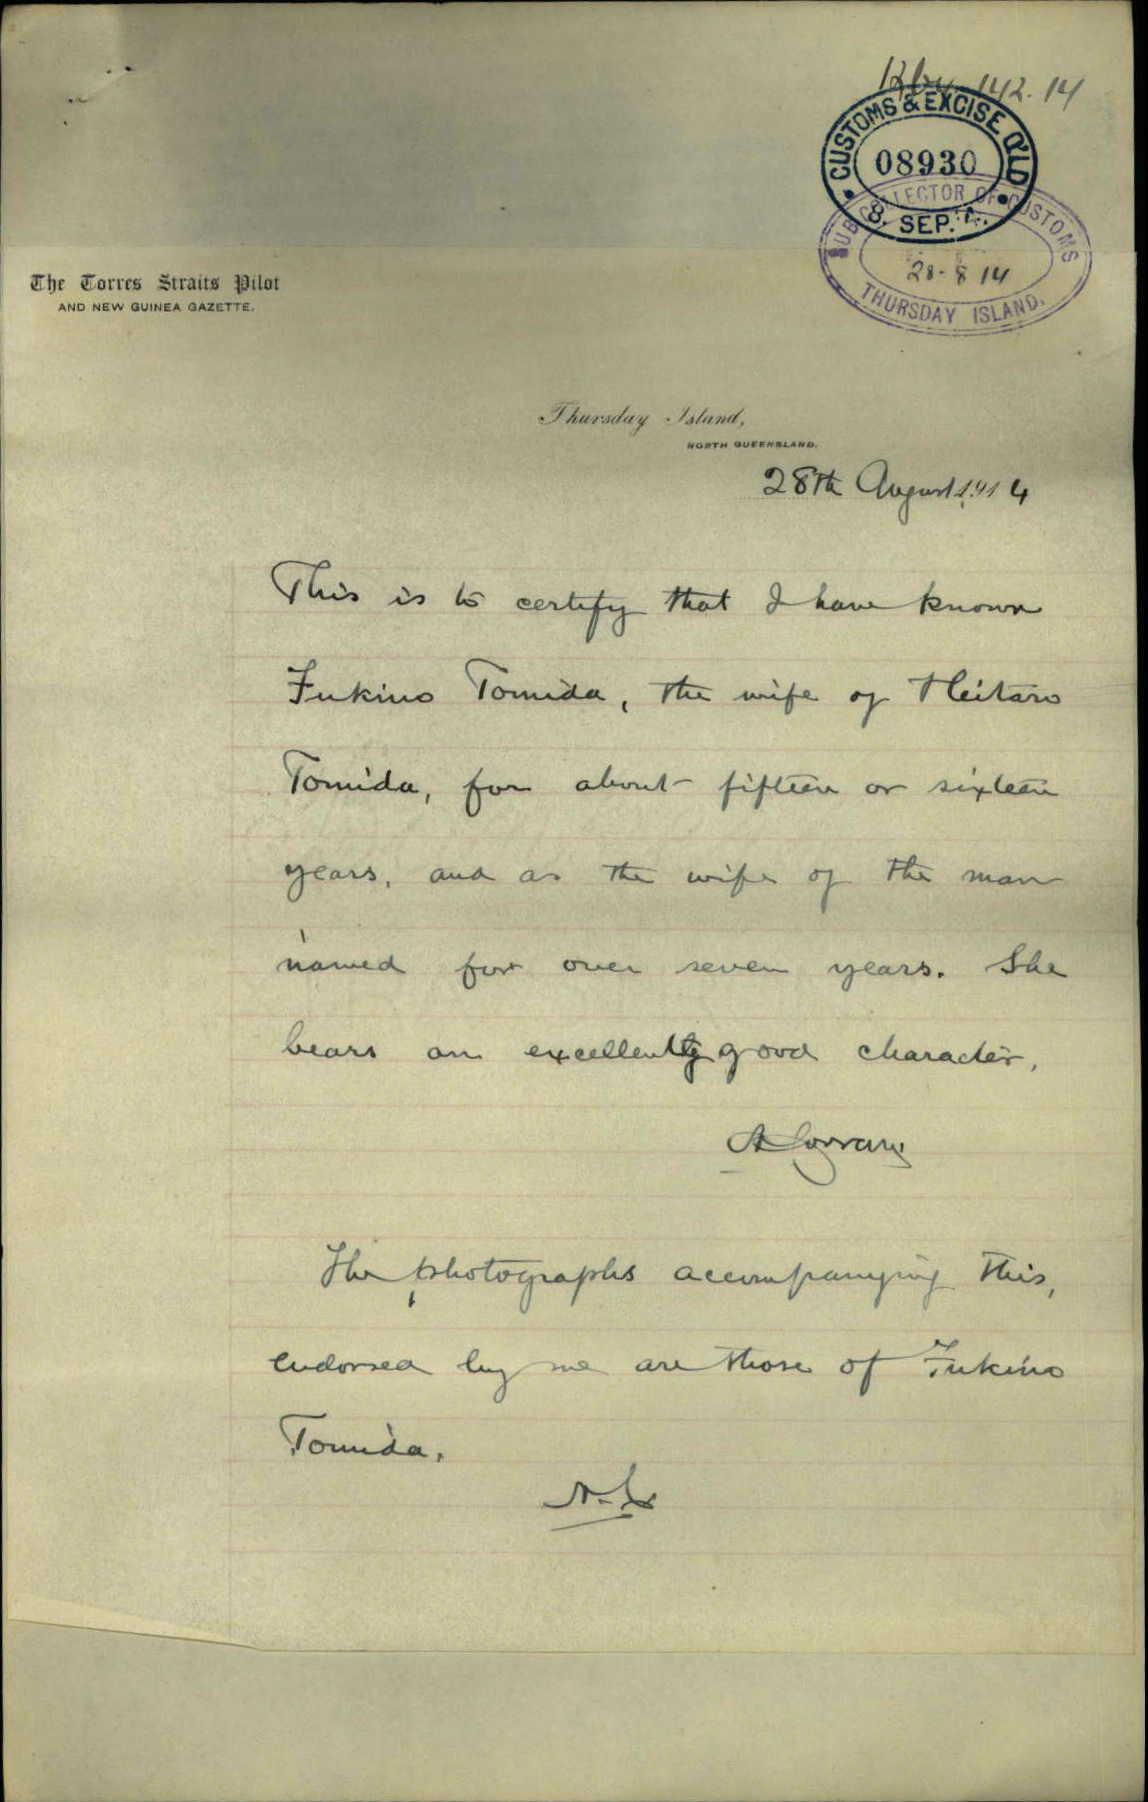 142.14
CUSTOMS & EXCISE QLD
08930
8. SEP.
SUB COLLECTOR OF CUSTOMS
28-8 14
THURSDAY ISLAND.
The Torres Straits Pilot
AND NEW GUINEA GAZETTE.
Thursday Island,
NORTH QUEENSLAND.
28th August 1914
This is to certify that I have known
Fukino Tomida, the wife of Heitaro
Tomida, for about fifteen or sixteen
years, and as the wife of the man
named for over seven years. She
bears an excellently good character.
The photographs accompanying this,
endorsed by me are those of Fukino
Tomida.